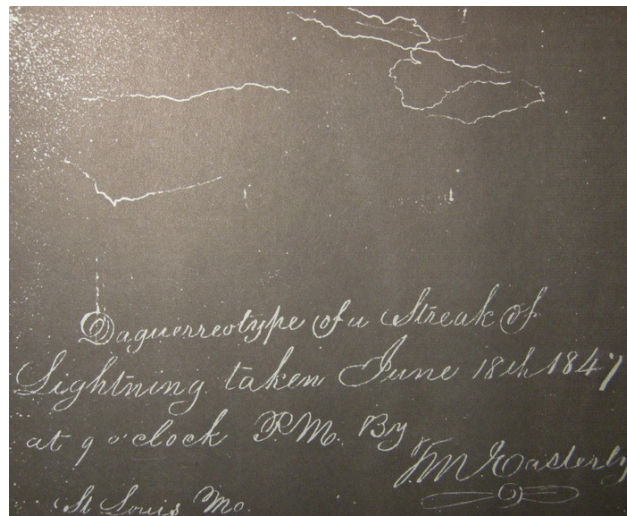 Daguerreotype of a Streak of
Lightning taken June 18th 1847
at 9 o'clock P.M. By
T.M. Easterly
St Louis Mo.